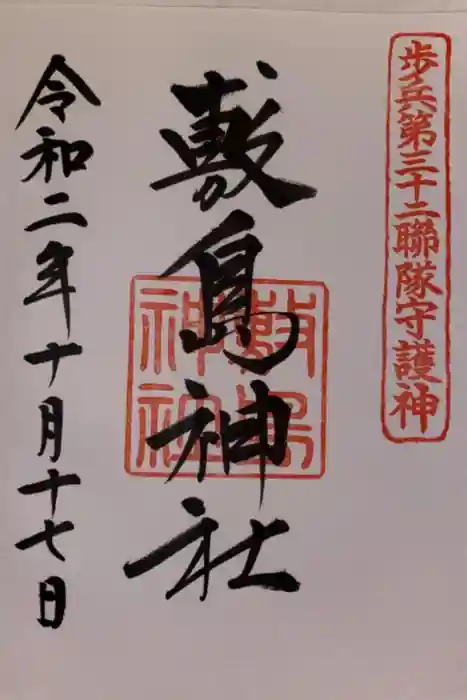 歩兵第三十二聯隊守護神
敷島神社
敷島
神社
令和二年十月十七日